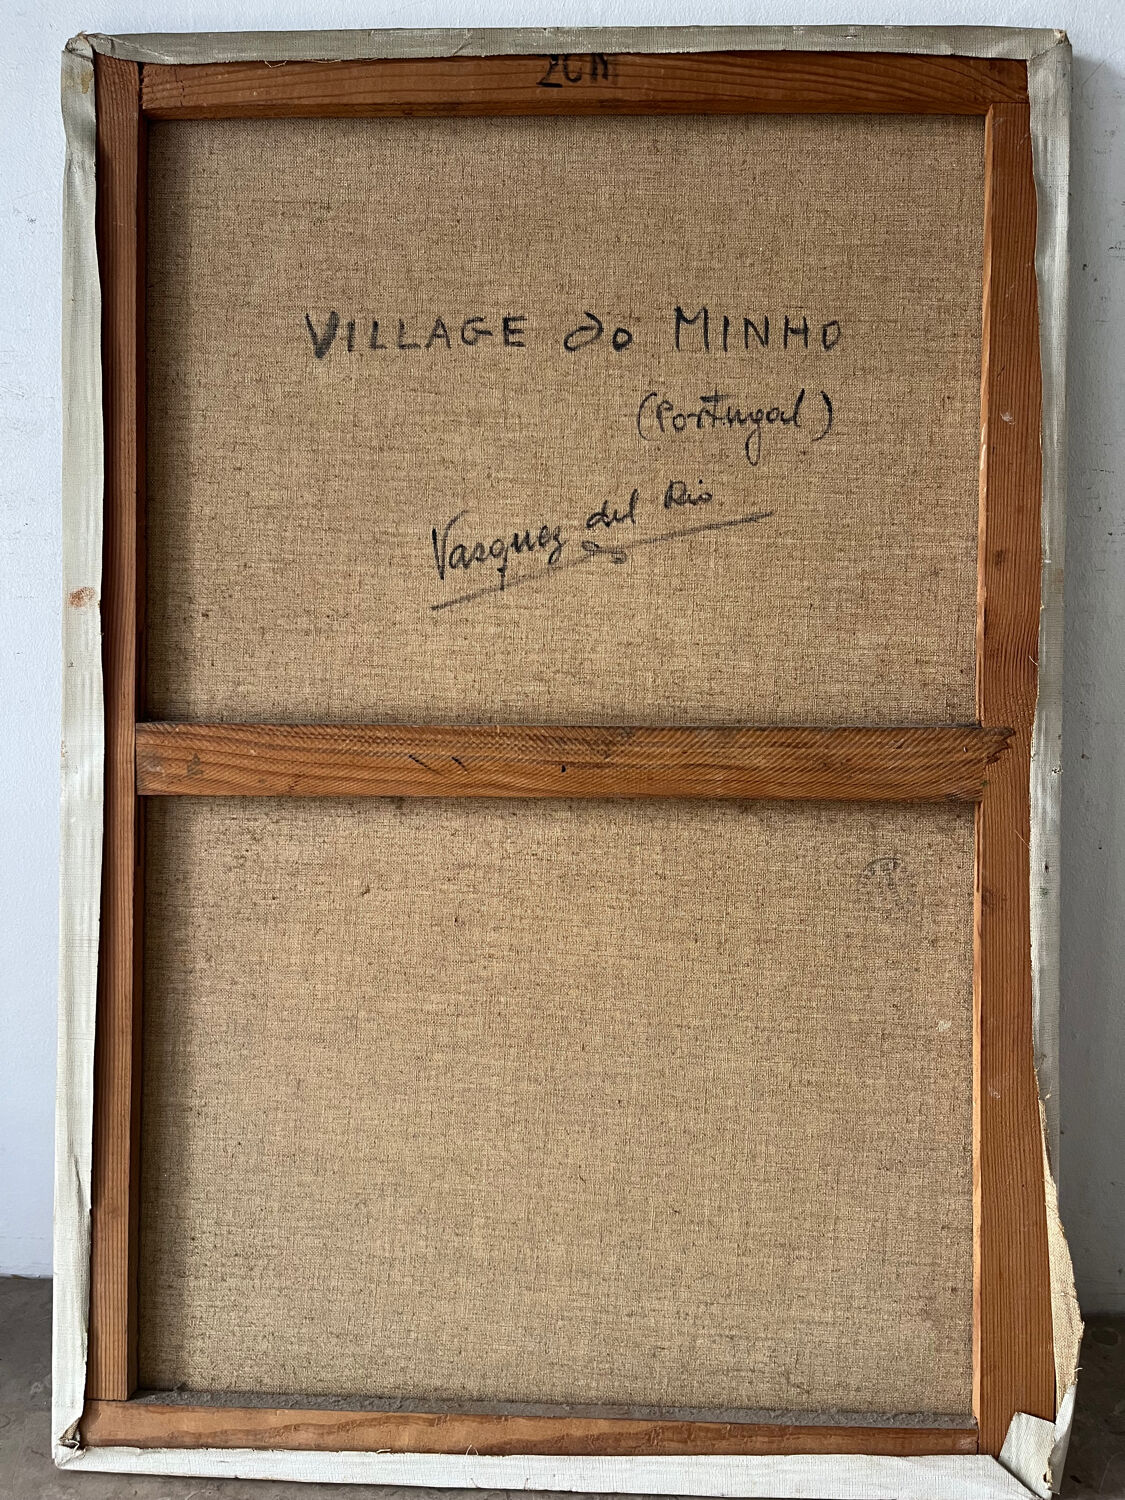 VILLAGE do MINHO
(Portugal)
Vasquez del Rio